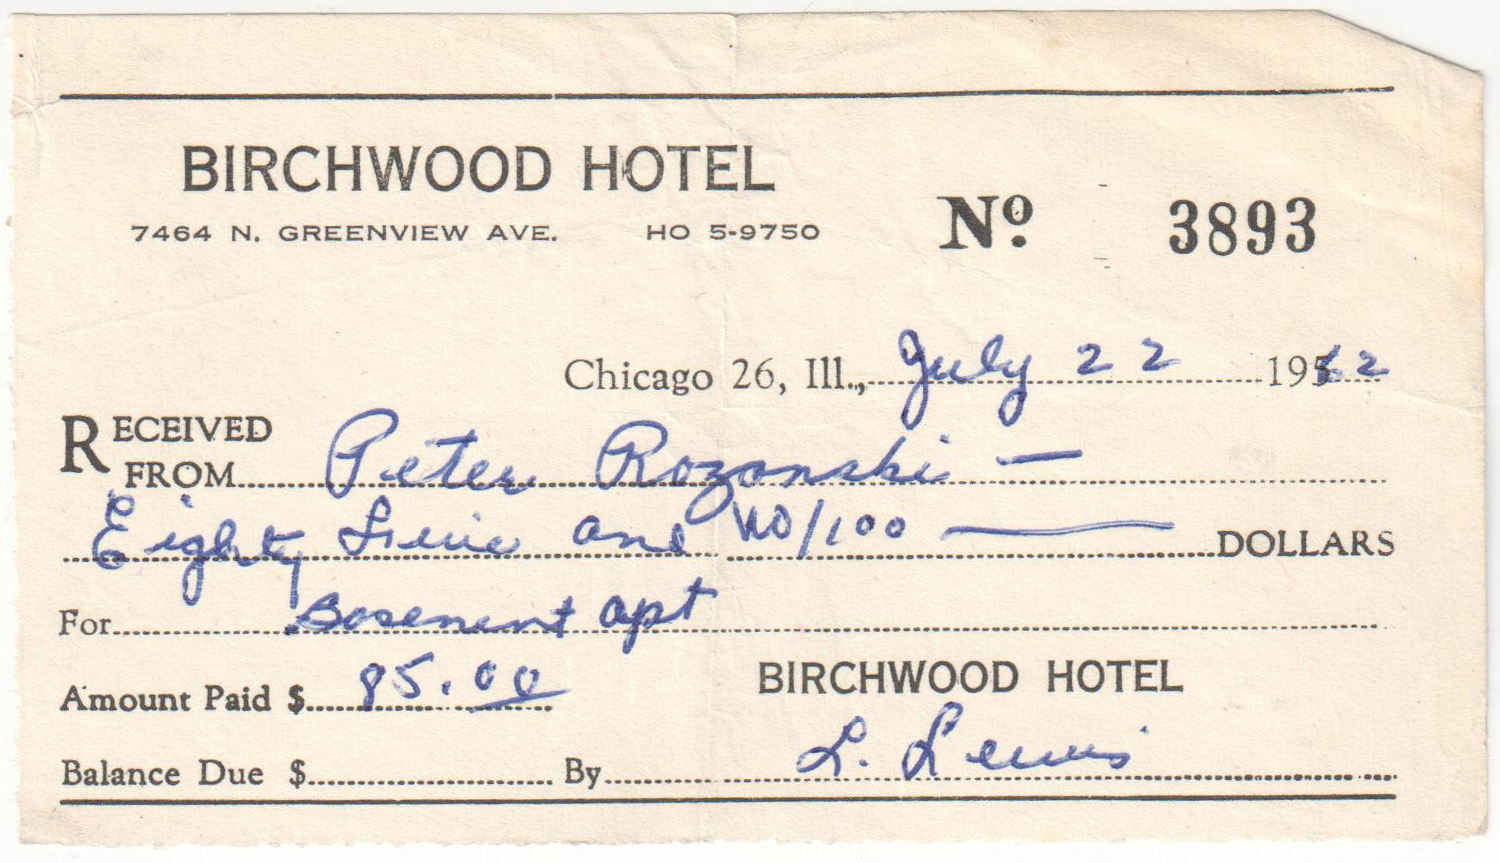 BIRCHWOOD HOTEL
7464 N. GREENVIEW AVE. HO 5-9750
Nº 3893
Chicago 26, Ill., July 22 1962
RECEIVED FROM Peter Rozanski —
Eighty Five and no/100 — DOLLARS
For Basement apt
Amount Paid $ 85.00
BIRCHWOOD HOTEL
Balance Due $ By L. Lewis